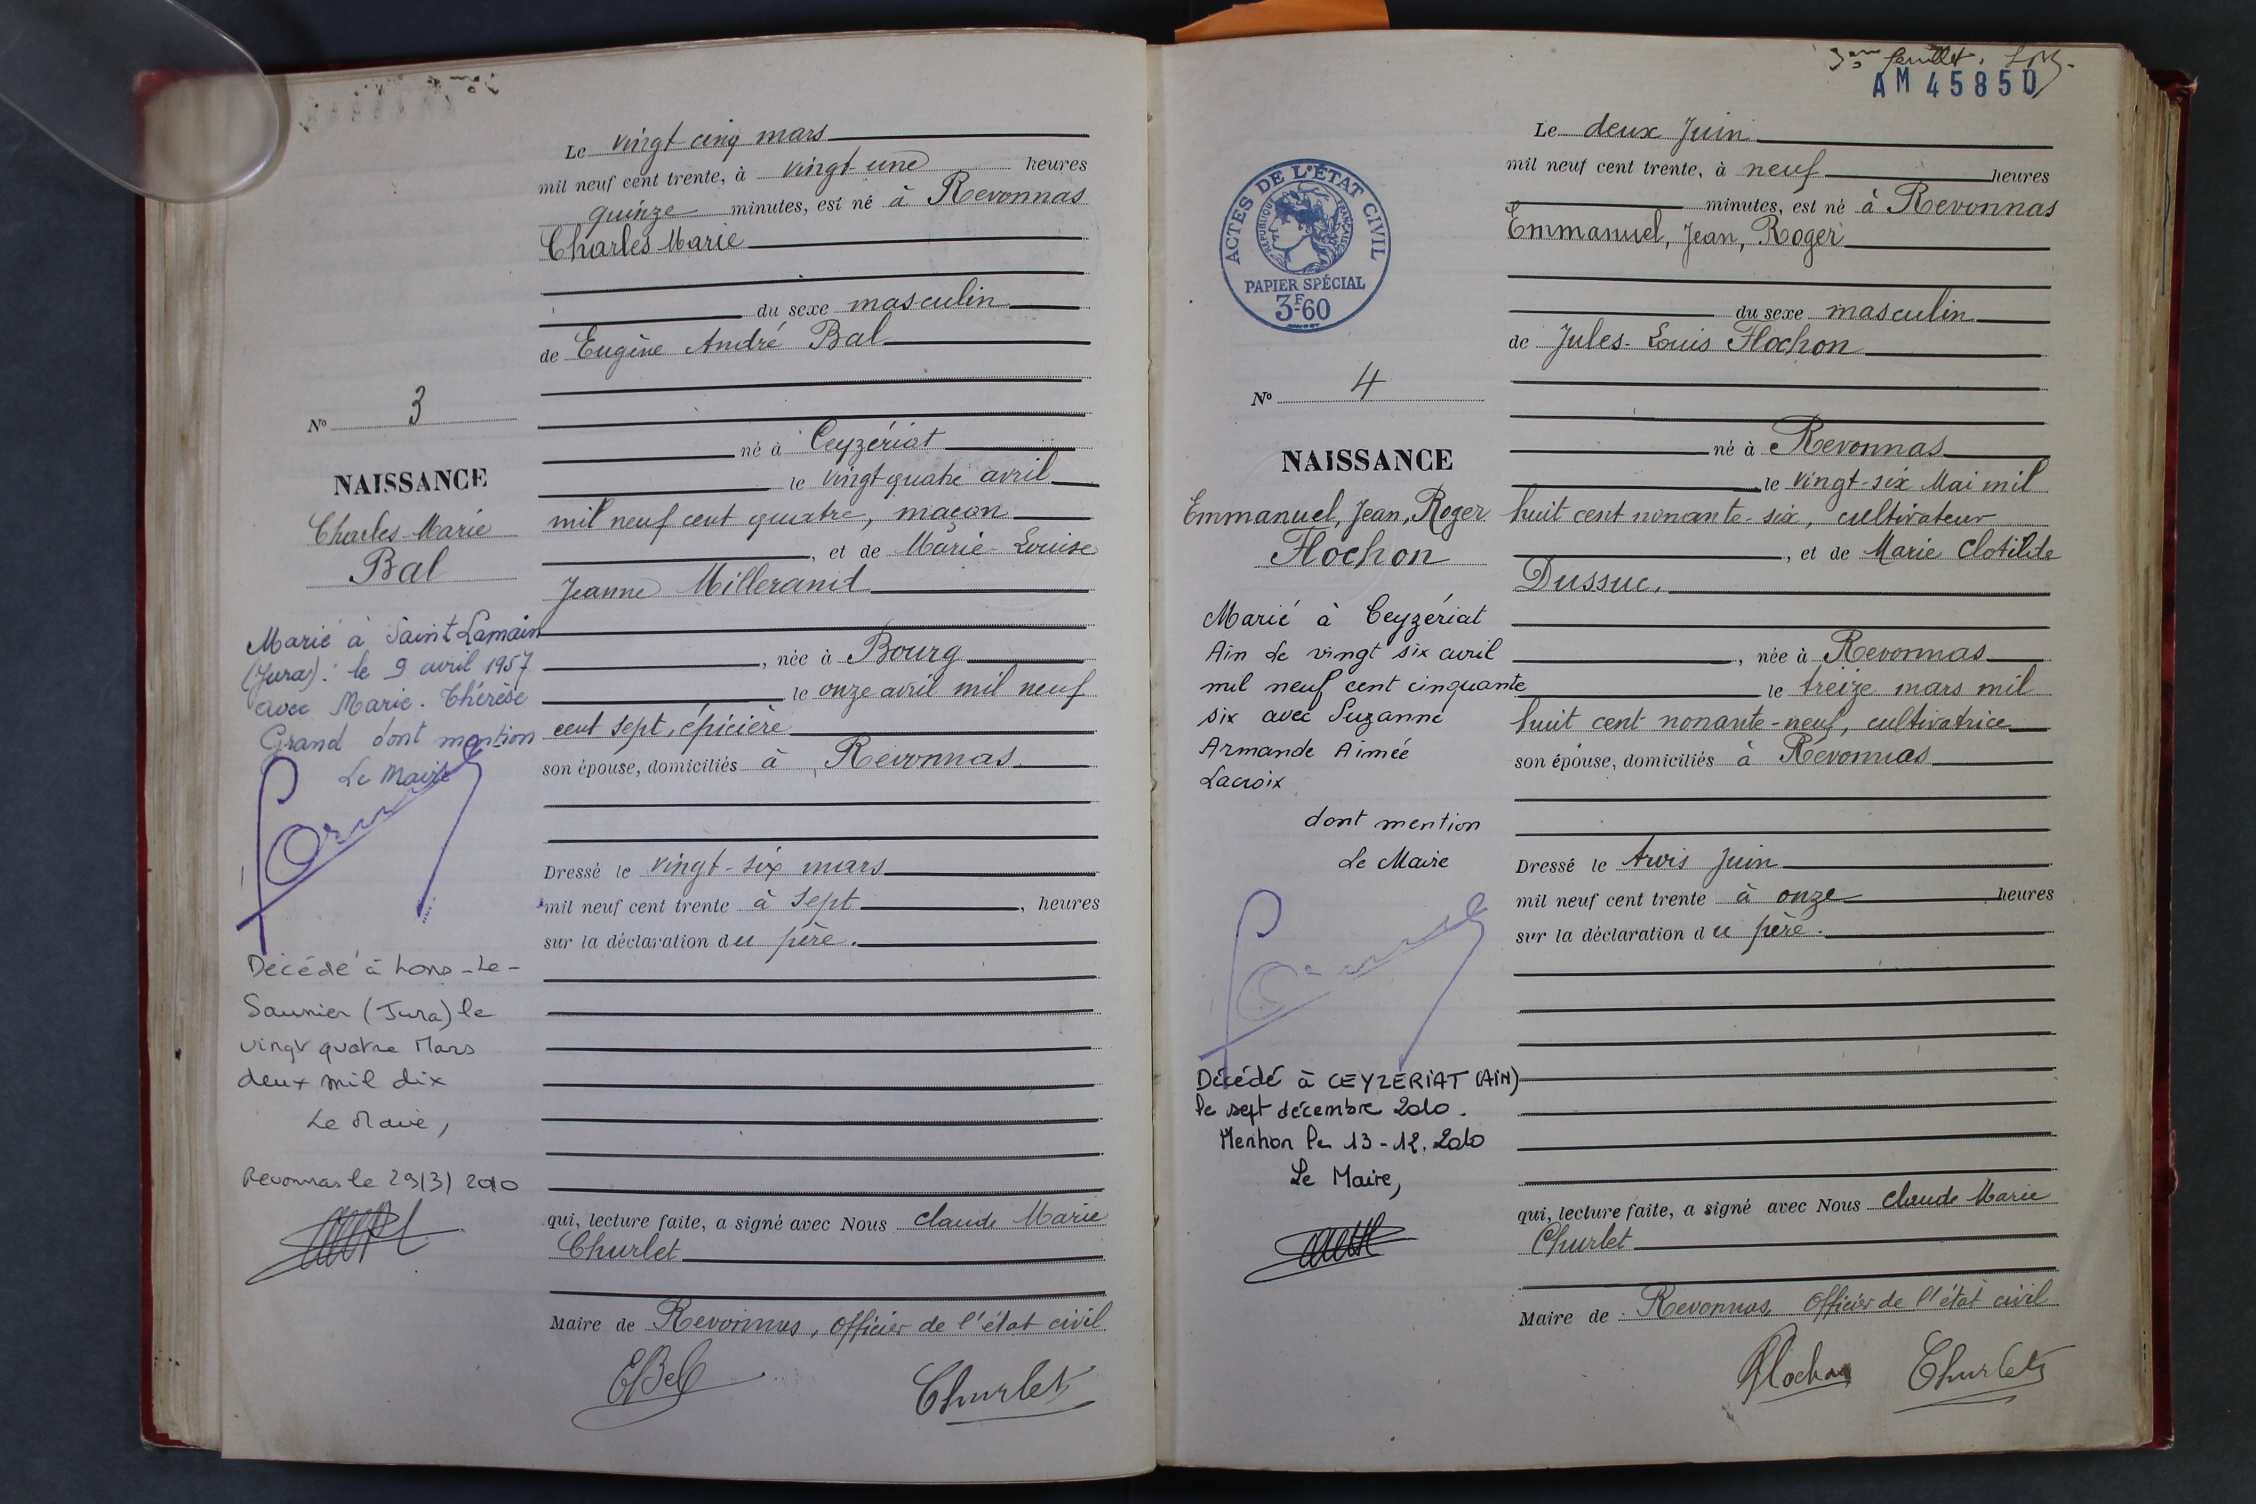 Le vingt cinq mars
mil neuf cent trente, à vingt une heures
quinze minutes, est né à Revonnas
Charles Marie
du sexe masculin
de Eugène André Bal
né à Ceyzériat
le vingt quatre avril
mil neuf cent quatre, maçon
, et de Marie-Louise
Jeanne Millerand
, née à Bourg
le onze avril mil neuf
cent sept, épicière
son épouse, domiciliés à Revonnas
Dressé le vingt-six mars
mil neuf cent trente à sept , heures
sur la déclaration du père.
qui, lecture faite, a signé avec Nous Claude Marie
Churlet
Maire de Revonnas, Officier de l'état civil
EBal
Churlet
No 3
NAISSANCE
Charles Marie
Bal
Marié à Saint Lamain
(Jura) : le 9 avril 1957
avec Marie-Thérèse
Grand dont mention
Le Maire
Décédé à Lons-Le-
Saunier (Jura) le
vingt quatre Mars
deux mil dix
Le Maire,
Revonnas le 29/3/2010
3ème feuillet.
AM 45850
Le deux Juin
mil neuf cent trente, à neuf heures
minutes, est né à Revonnas
Emmanuel, Jean, Roger
du sexe masculin
de Jules-Louis Flochon
né à Revonnas
le vingt-six Mai mil
huit cent nonante-six, cultivateur
, et de Marie Clotilde
Dussuc.
, née à Revonnas
le treize mars mil
huit cent nonante-neuf, cultivatrice
son épouse, domiciliés à Revonnas
Dressé le trois Juin
mil neuf cent trente à onze heures
sur la déclaration du père.
qui, lecture faite, a signé avec Nous Claude Marie
Churlet
Maire de Revonnas, Officier de l'état civil
Flochon
Churlet
ACTES DE L'ÉTAT CIVIL
RÉPUBLIQUE FRANÇAISE
PAPIER SPÉCIAL
3F60
No 4
NAISSANCE
Emmanuel, Jean, Roger
Flochon
Marié à Ceyzériat
Ain Le vingt six avril
mil neuf cent cinquante
six avec Suzanne
Armande Aimée
Lacroix
dont mention
Le Maire
Décédé à CEYZERIAT (AIN)
le sept décembre 2010.
Mention le 13-12.2010
Le Maire,